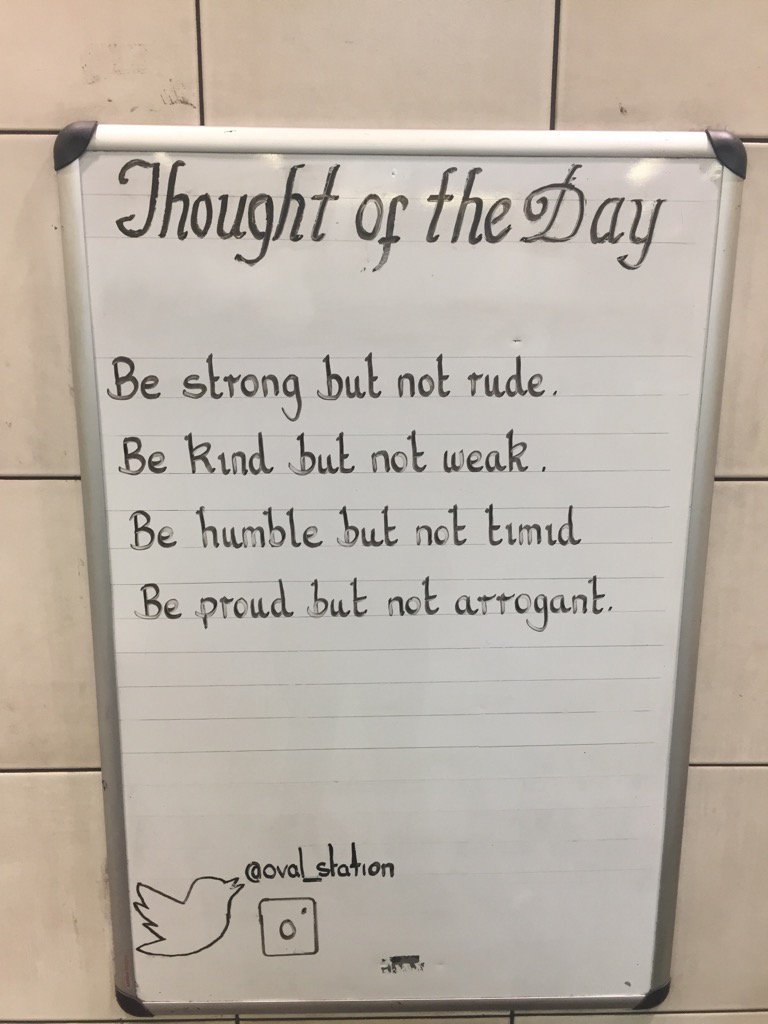 Thought of the Day
Be strong but not rude.
Be kind but not weak.
Be humble but not timid
Be proud but not arrogant.
@oval_station